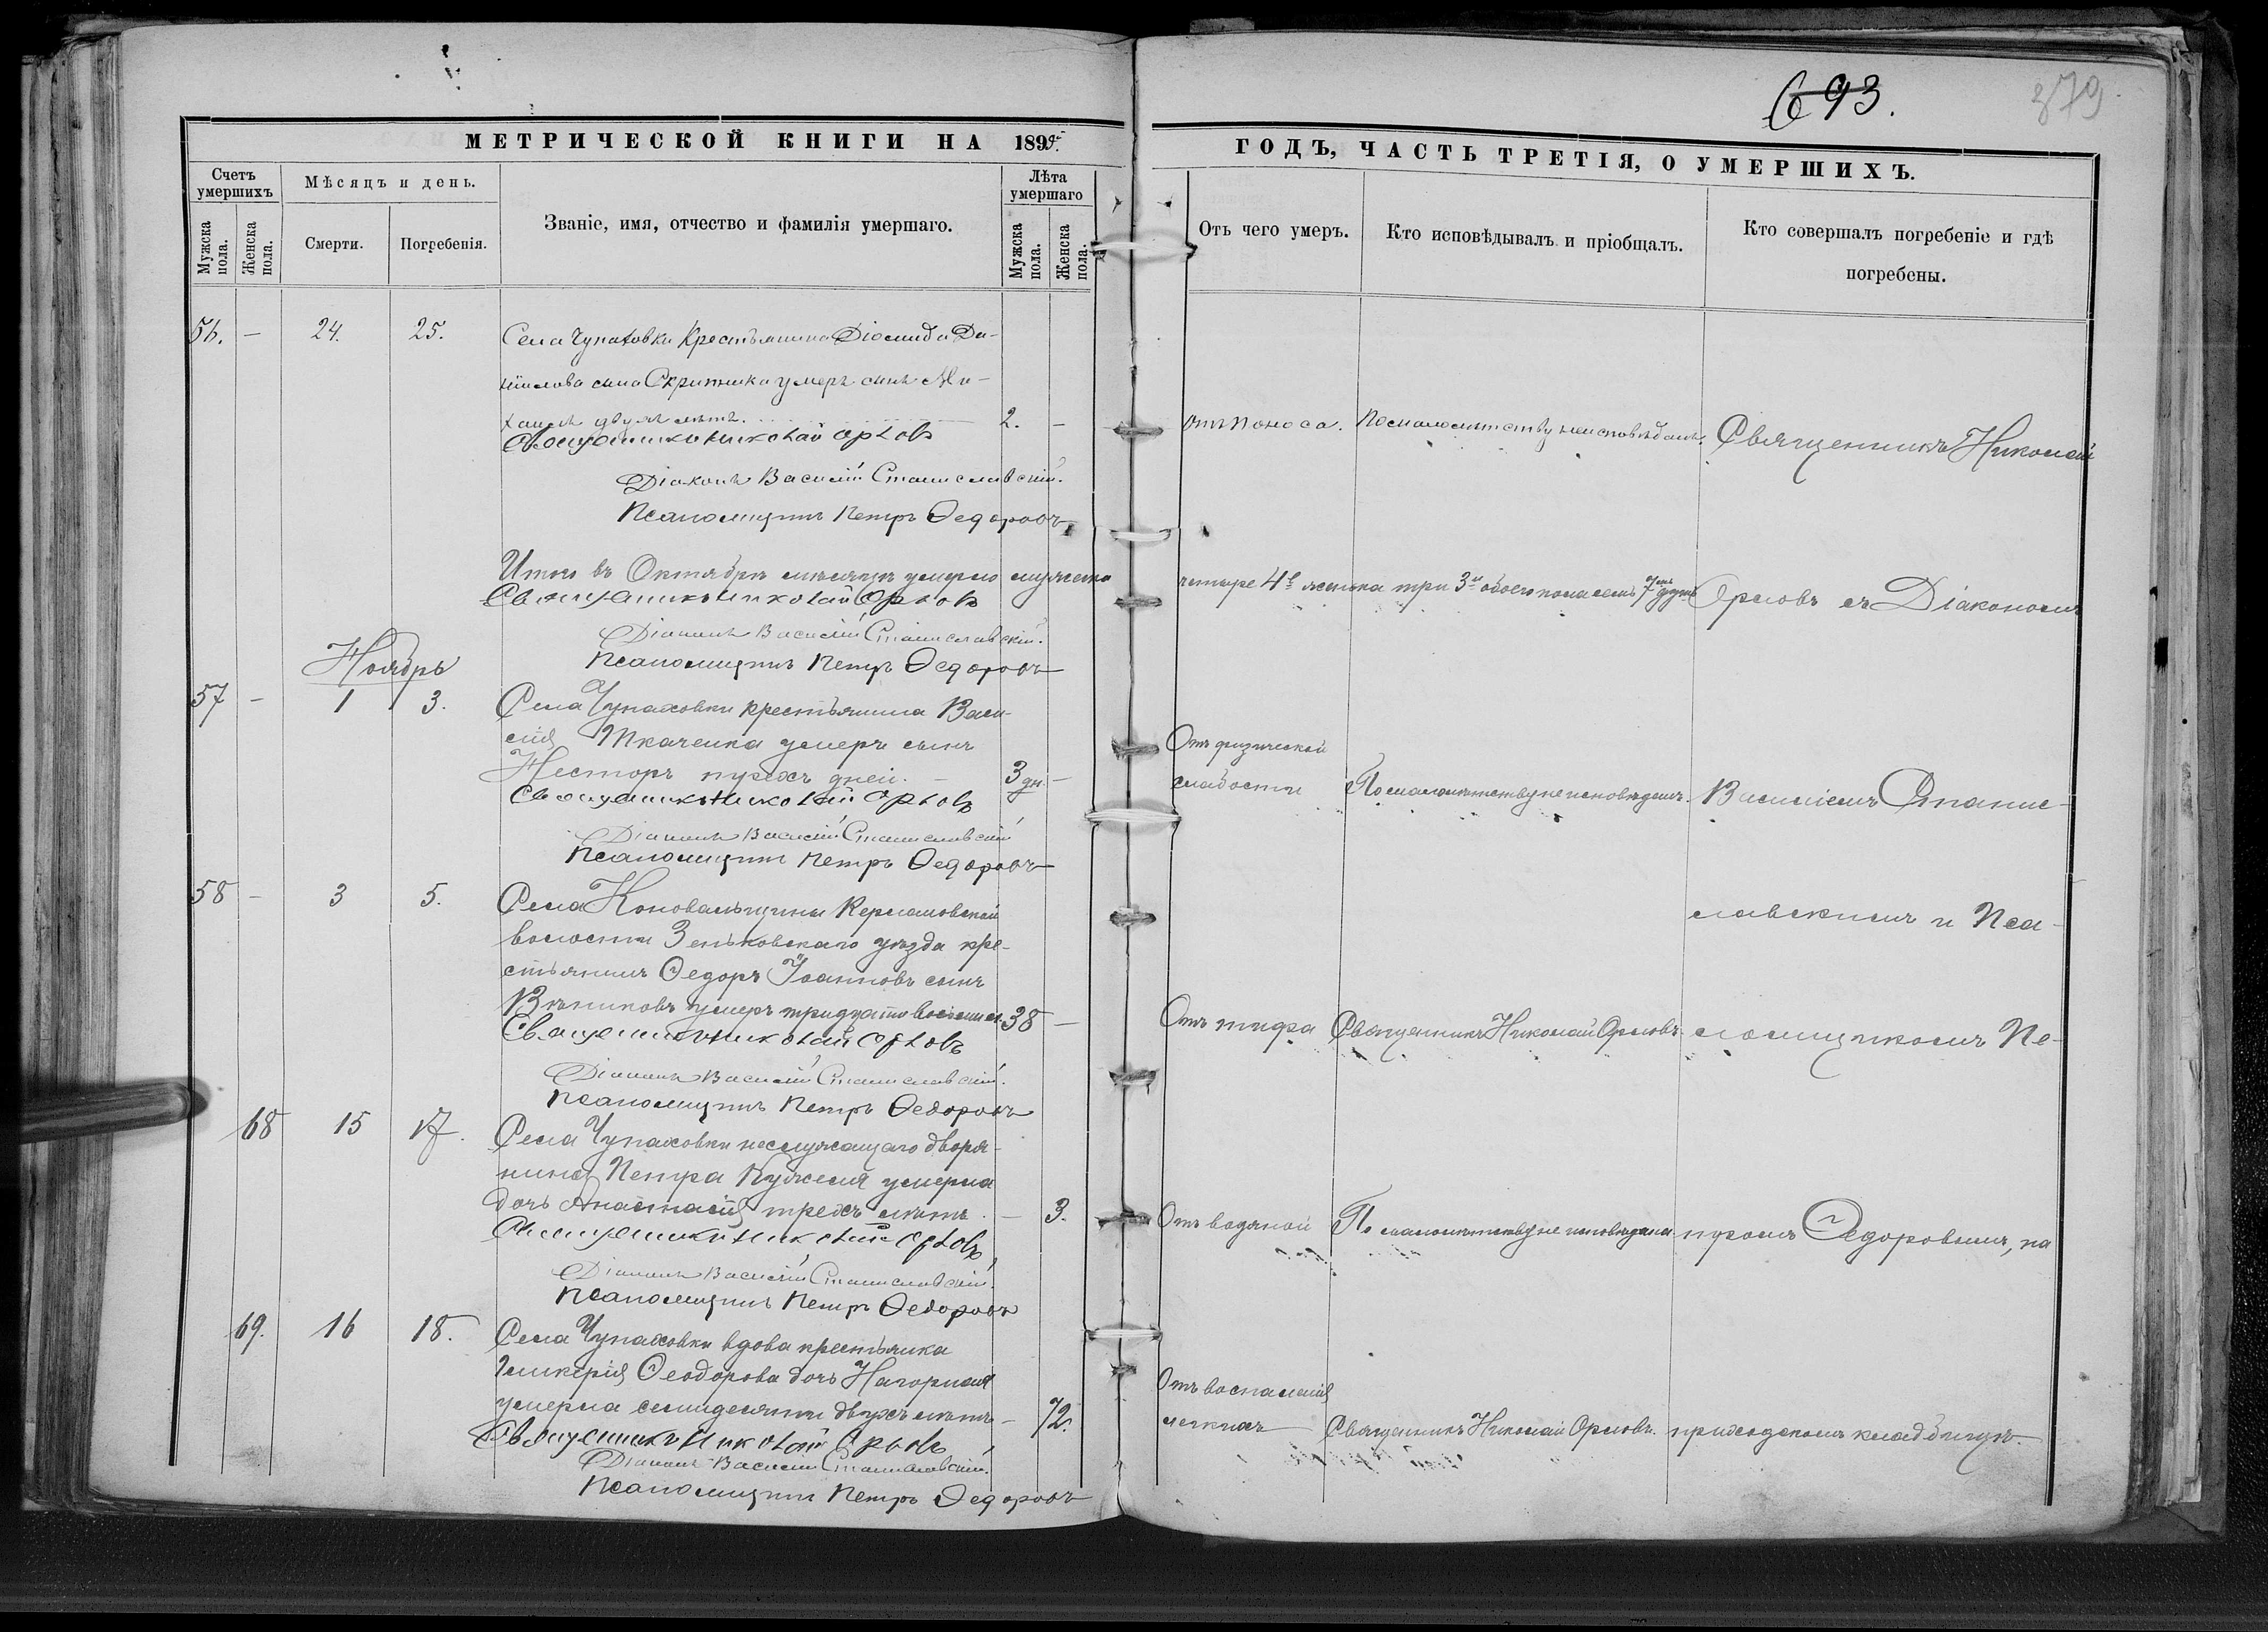 693.
379
МЕТРИЧЕСКОЙ КНИГИ НА 1899
ГОДЪ, ЧАСТЬ ТРЕТІЯ, О УМЕРШИХЪ.
Счетъ умершихъ
Мужска пола.
Женска пола.
Мѣсяцъ и день.
Смерти.
Погребенія.
Званіе, имя, отчество и фамилія умершаго.
Лѣта умершаго
Мужска пола.
Женска пола.
Отъ чего умеръ.
Кто исповѣдывалъ и пріобщалъ.
Кто совершалъ погребеніе и гдѣ
погребены.
56. — 24. 25. Села Чупаховки Крестьянина Діомида Да-
ніилова сына Скрипника умеръ сынъ Ми-
хаилъ двухъ лѣтъ. 2. — Отъ поноса. По малолѣтству неисповѣданъ. Священникъ Николай
Священникъ Николай Орловъ
Діаконъ Василій Станиславскій.
Псаломщикъ Петръ Ѳедоровъ
Итого въ Октябрѣ мѣсяцѣ умерло мужеска четыре 4 женска три 3 обоего пола семь 7 душъ Орловъ съ Діакономъ
Священникъ Николай Орловъ
Діаконъ Василій Станиславскій.
Псаломщикъ Петръ Ѳедоровъ
Ноябрь
57 — 1 3. Села Чупаховки крестьянина Васи-
лія Ткаченка умеръ сынъ Отъ физической
Несторъ трехъ дней. — 3 дн. — слабости По малолѣтству не исповѣданъ. Василіемъ Станис-
Священникъ Николай Орловъ
Діаконъ Василій Станиславскій
Псаломщикъ Петръ Ѳедоровъ
58 — 3 5. Села Коновальщины
славскимъ и Пса-
волости Зеньковскаго уѣзда кре-
стьянинъ Ѳедоръ Іоанновъ сынъ
умеръ тридцати восьми л. 38 — Отъ тифа Священникъ Николай Орловъ ломщикомъ Пе-
Священникъ Николай Орловъ
Діаконъ Василій Станиславскій.
Псаломщикъ Петръ Ѳедоровъ
68 15 17. Села Чупаховки неслужащаго дворя-
нина Петра Кужеля умерла
дочь Анастасія трехъ лѣтъ. — 3. Отъ водяной По малолѣтству не исповѣдана тромъ Ѳедоровымъ, на
Священникъ Николай Орловъ
Діаконъ Василій Станиславскій.
Псаломщикъ Петръ Ѳедоровъ
69. 16 18. Села Чупаховки вдова крестьянка
Гликерія Ѳеодорова дочь Нагорная Отъ воспаленія
умерла семидесяти двухъ лѣтъ — 72. легкихъ Священникъ Николай Орловъ. приходскомъ кладбищѣ.
Священникъ Николай Орловъ
Діаконъ Василій Станиславскій.
Псаломщикъ Петръ Ѳедоровъ